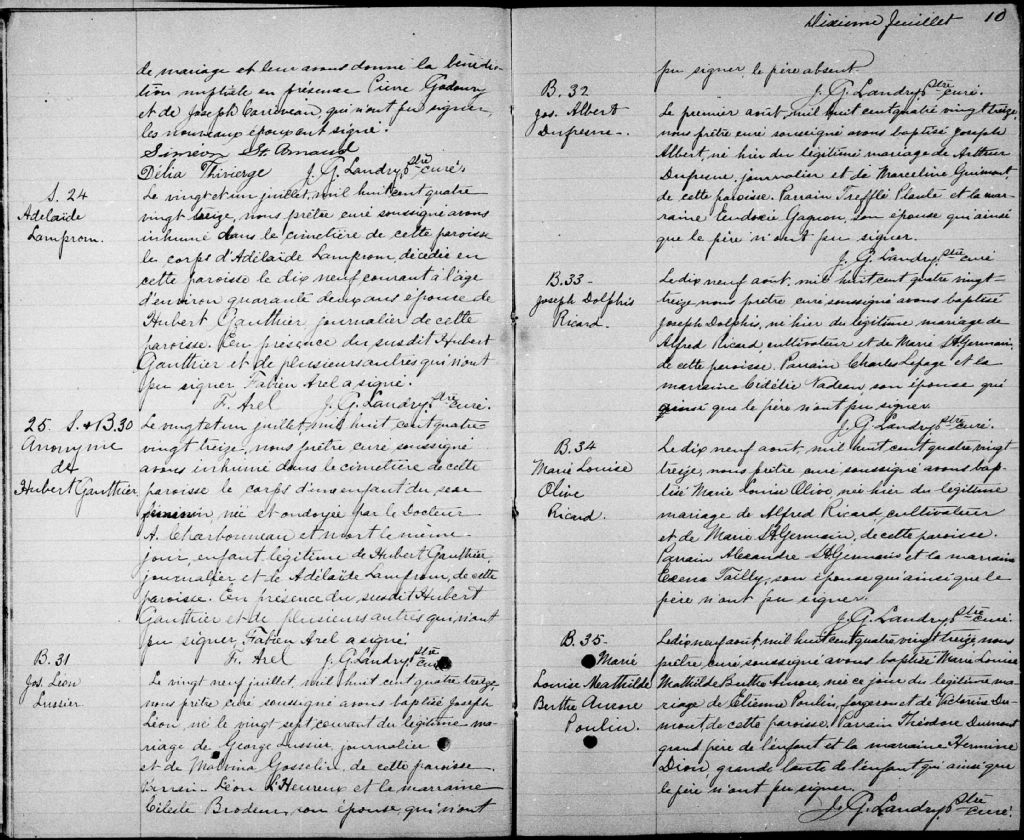 de mariage et leur avons donné la bénédic-
tion nuptiale en présence Pierre Godaury
et de Joseph qui n'ont pu signer,
les nouveaux époux ont signé.
Siméon St. Arnaud
Délia Thivierge J. G. Landry, Ptre curé.
S. 24
Adélaïde
Lamprom.
Le vingt et un juillet, mil huit cent quatre
vingt treize, nous, prêtre curé soussigné avons
inhumé dans le cimetière de cette paroisse
le corps d'Adélaïde Lamprom, décédée en
cette paroisse le dix neuf courant à l'âge
d'environ quarante deux ans épouse de
Hubert Gauthier, journalier de cette
paroisse. En présence du susdit Hubert
Gauthier et de plusieurs autres qui n'ont
pu signer Fabien Arel a signé.
F. Arel J. G. Landry, Ptre curé.
25 S. + B. 30
Anonyme
de
Hubert Gauthier
Le vingt et un juillet, mil huit cent quatre
vingt treize, nous prêtre curé soussigné
avons inhumé dans le cimetière de cette
paroisse le corps d'un enfant du sexe
féminin, née et ondoyée par le Docteur
A. Charbonneau et mort le même
jour, enfant légitime de Hubert Gauthier,
journalier et de Adélaïde Lamprom, de cette
paroisse. En présence du susdit Hubert
Gauthier et de plusieurs autres qui n'ont
pu signer, Fabien Arel a signé.
F. Arel J. G. Landry, Ptre curé
B. 31
Jos. Léon
Lussier.
Le vingt neuf juillet, mil huit cent quatre treize,
nous prêtre curé soussigné avons baptisé Joseph
Léon, né le vingt sept courant du légitime ma-
riage de George Lussier, journalier
et de Malvina Gosselin, de cette paroisse.
Parrain Léon L'Heureux et la marraine
Céleste Brodeur, son épouse, qui n'ont
Dixième feuillet 10
pu signer, le père absent.
J. G. Landry, Ptre curé.
B. 32
Jos. Albert
Dufresne.
Le premier août, mil huit cent quatre vingt treize,
nous prêtre curé soussigné avons baptisé Joseph
Albert, né hier du légitime mariage de Arthur
Dufresne, journalier et de Marceline Guimont,
de cette paroisse. Parrain Trefflé Planté et la mar-
raine Eudoxie Gagnon, son épouse qui ainsi
que le père n'ont pu signer.
J. G. Landry, Ptre curé
B. 33 -
Joseph Dolphis
Ricard.
Le dix neuf août, mil huit cent quatre vingt-
treize, nous prêtre curé soussigné avons baptisé
Joseph Dolphis, né hier du légitime mariage de
Alfred Ricard, cultivateur et de Marie St. Germain,
de cette paroisse. Parrain Charles Lepage et la
marraine Cédélie Nadeau son épouse qui
ainsi que le père n'ont pu signer.
J. G. Landry, Ptre curé.
B. 34
Marie Louise
Olive
Ricard.
Le dix neuf août, mil huit cent quatre vingt
treize, nous prêtre curé soussigné avons bap-
tisé Marie Louise Olive, née hier du légitime
mariage de Alfred Ricard, cultivateur
et de Marie St. Germain, de cette paroisse.
Parrain Alexandre St. Germain et la marraine
Exena Tailly, son épouse qui ainsi que le
père n'ont pu signer.
J. G. Landry, Ptre curé.
B. 35 -
Marie
Louise Meathilde
Berthe Aurore
Poulin.
Le dix neuf août, mil huit cent quatre vingt treize, nous
prêtre curé soussigné avons baptisé Marie Louise
Mathilde Berthe Aurore, née ce jour du légitime ma-
riage de Etienne Poulin, forgeron et de Victorine Du-
mont, de cette paroisse. Parrain Théodore Dumont
grand père de l'enfant et la marraine Hermine
Dion, grande tante de l'enfant qui ainsi que
le père n'ont pu signer.
J. G. Landry, Ptre curé.